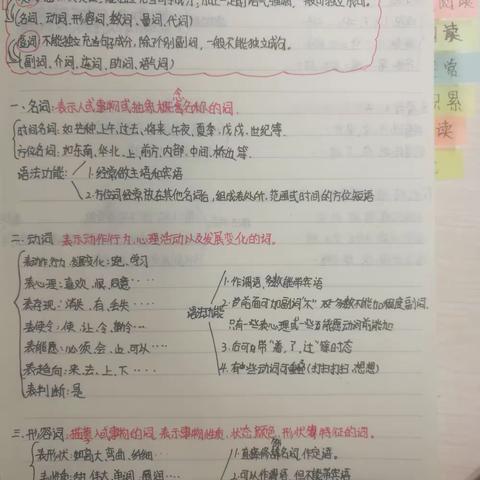 (名词、动词、形容词、数词、量词、代词)
虚词:不能独立充当句子成分,除了个别副词,一般不能独立成句。
(副词、介词、连词、助词、语气词)
一、名词:表示人或事物或抽象概念名称的词。
时间名词:如芒种、上午、过去、将来、午夜、夏季、戊戌、世纪等.
方位名词:如东南、华北、上、前方、内部、中间、桥边等.
语法功能:
1.经常做主语和宾语
2.方位词经常放在其他名词后,组成表处所、范围或时间的方位短语
二、动词 表示动作行为、心理活动以及发展变化的词。
表动作、行为、发展变化:跑、学习
表心理:喜欢、恨、同意……
表存现:消失、有、丢失……
表使令:使、让、令、禁令……
表能愿:必须、会、可以……
表趋向:来、去、上、下……
表判断:是
语法功能
1.作谓语,多数能带宾语
2.前面可加副词"不",多数不能加程度副词.
只有一些表心理或一些能愿动词前能加
3.后可带"着,了,过"等时态
4.有些动词可重叠(扫扫,想想)
三、形容词:描摹人或事物的词 表示事物性质、状态、颜色、形状等特征的词。
表形状:如高大、弯曲、
1.直接修饰名词,作定语。
2.可以作谓语,但不能带宾语
阅读
读
常
积累
读